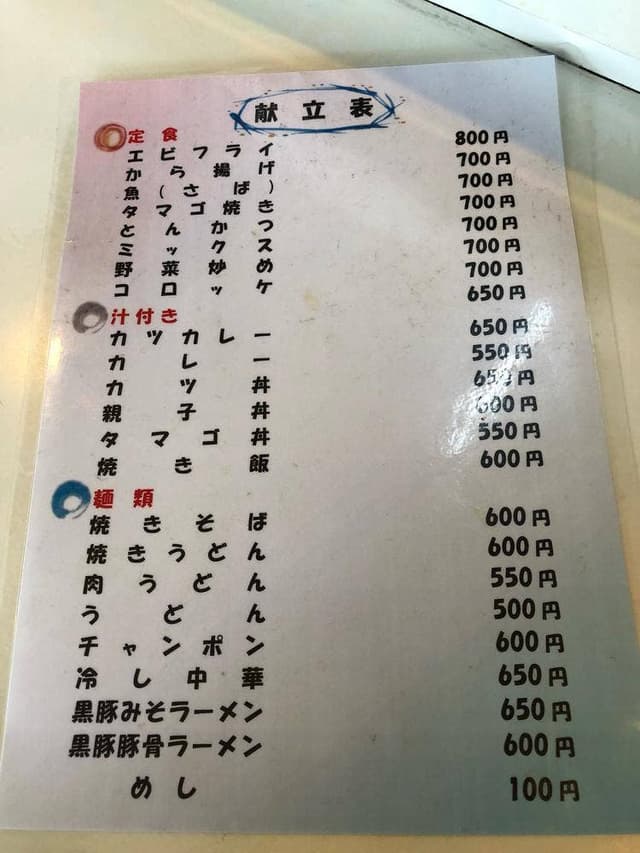 献立表
定食
エビフライ 800円
から揚げ 700円
魚(さば) 700円
タマゴ焼き 700円
とんかつ 700円
ミックス 700円
野菜炒め 700円
コロッケ 650円
汁付き
カツカレー 650円
カレー 550円
カツ丼 650円
親子丼 600円
タマゴ丼 550円
焼き飯 600円
麺類
焼きそば 600円
焼きうどん 600円
肉うどん 550円
うどん 500円
チャンポン 600円
冷し中華 650円
黒豚みそラーメン 650円
黒豚豚骨ラーメン 600円
めし 100円